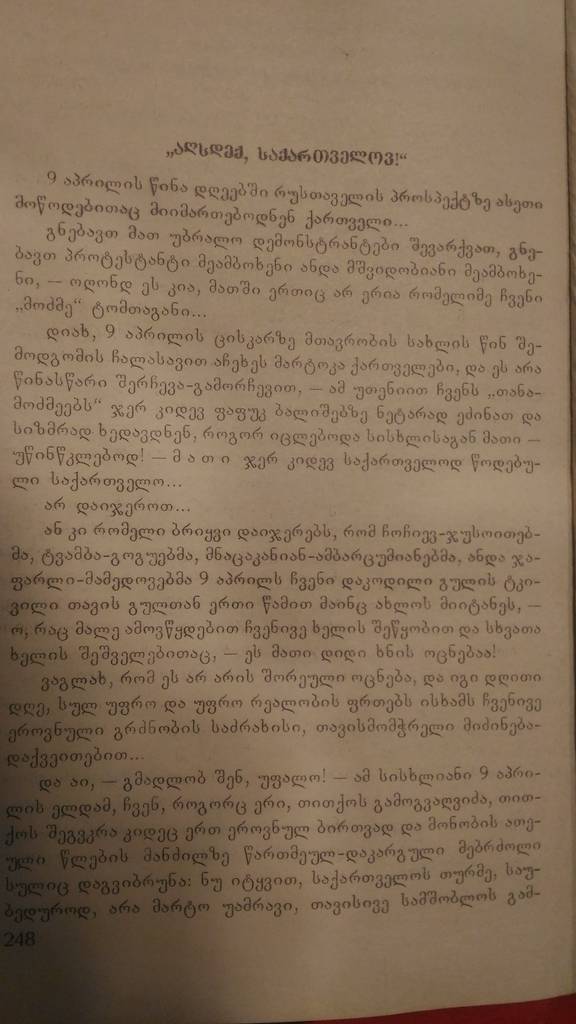 „აღსდექ, საქართველოვ!“
9 აპრილის წინა დღეებში რუსთაველის პროსპექტზე ასეთი
მოწოდებითაც მიიმართებოდნენ ქართველი...
გნებავთ მათ უბრალო დემონსტრანტები შევარქვათ, გნე-
ბავთ პროტესტანტი მეამბოხენი ანდა მშვიდობიანი მეამბოხე-
ნი, — ოღონდ ეს კია, მათში ერთიც არ ერია რომელიმე ჩვენი
„მოძმე“ ტომთაგანი...
დიახ, 9 აპრილის ცისკარზე მთავრობის სახლის წინ შე-
მოდგომის ჩალასავით აჩეხეს მარტოკა ქართველები, და ეს არა
წინასწარი შერჩევა-გამორჩევით, — ამ უთენიით ჩვენს „თანა-
მოძმეებს“ ჯერ კიდევ ფაფუკ ბალიშებზე ნეტარად ეძინათ და
სიზმრად ხედავდნენ, როგორ იცლებოდა სისხლისაგან მათი —
უწინწკლებოდ! — მ ა თ ი ჯერ კიდევ საქართველოდ წოდებუ-
ლი საქართველო...
არ დაიჯეროთ...
ან კი რომელი ბრიყვი დაიჯერებს, რომ ჩოჩიევ-ჯუსოითებ-
მა, ტვამბა-გოგუებმა, მნაცაკანიან-ამბარცუმიანებმა, ანდა ჯა-
ფარლი-მამედოვებმა 9 აპრილს ჩვენი დაკოდილი გულის ტკი-
ვილი თავის გულთან ერთი წამით მაინც ახლოს მიიტანეს, —
ო, რაც მალე ამოვწყდებით ჩვენივე ხელის შეწყობით და სხვათა
ხელის შეშველებითაც, — ეს მათი დიდი ხნის ოცნებაა!
ვაგლახ, რომ ეს არ არის შორეული ოცნება, და იგი დღითი
დღე, სულ უფრო და უფრო რეალობის ფრთებს ისხამს ჩვენივე
ეროვნული გრძნობის საძრახისი, თავისმომჭრელი მიძინება-
დაქვეითებით...
და აი, — გმადლობ შენ, უფალო! — ამ სისხლიანი 9 აპრი-
ლის ელდამ, ჩვენ, როგორც ერი, თითქოს გამოგვაღვიძა, თით-
ქოს შეგვკრა კიდეც ერთ ეროვნულ ბირთვად და მონობის ათე-
ული წლების მანძილზე წართმეულ-დაკარგული მებრძოლი
სულიც დაგვიბრუნა: ნუ იტყვით, საქართველოს თურმე, საუ-
ბედუროდ, არა მარტო უამრავი, თავისივე სამშობლოს გამ-
248